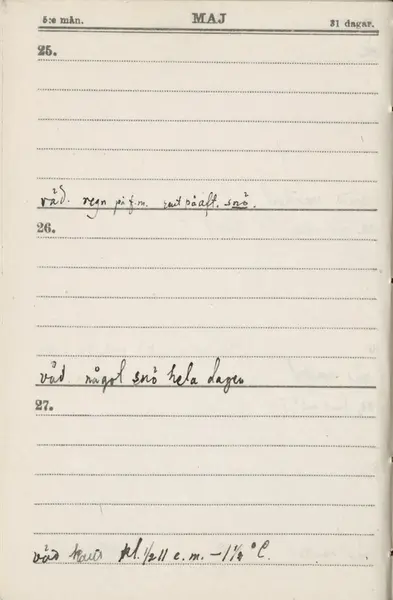 5:e mån. MAJ 31 dagar.
25.
våd. regn på f.m. samt på aft. snö.
26.
våd något snö hela dagen
27.
våd kl. 1/2 11 e.m. – 1 1/2 °C.